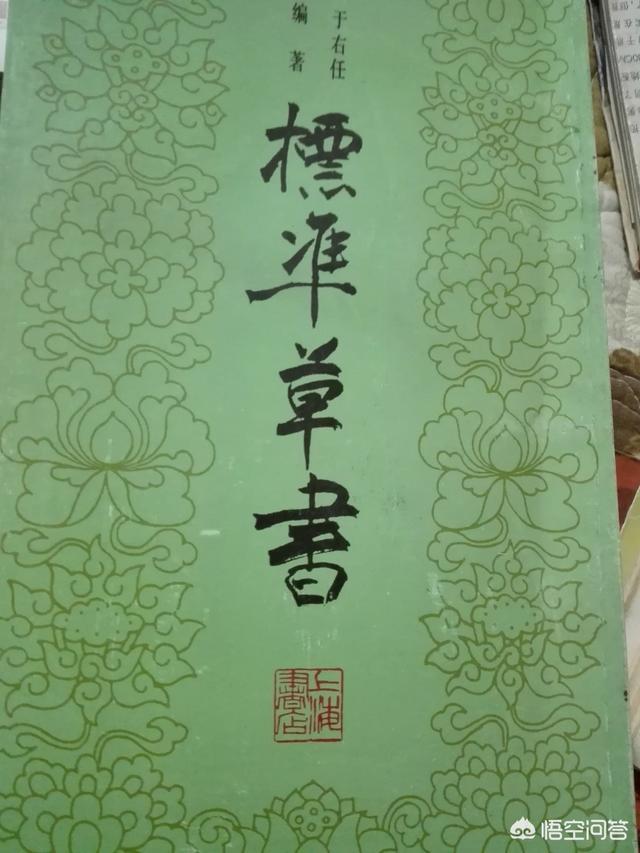 于右任
编著
標準草書
上海
書店
悟空问答